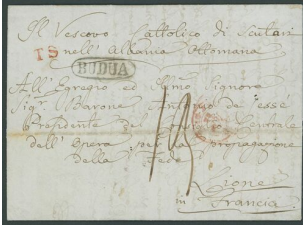 Il Vescovo Cattolico di Scutari
nell' Albania Ottomana
TS
BUDUA
All' Egregio ed Illmo Signore
Sigr. Barone Antonio de Jessé
Presidente del Centrale
dell' Opera per la propagazione
della Fede
Lione
in Francia